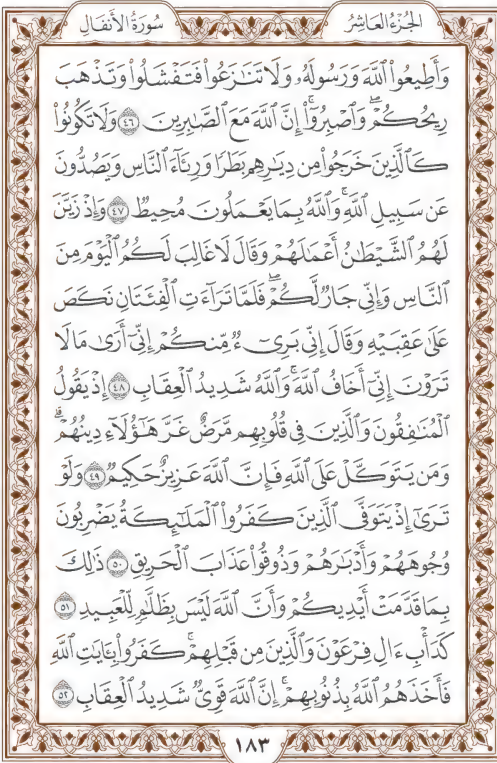 سُورَةُ الأَنفَالِ
الجُزْءُ العَاشِرُ
وَأَطِيعُواْ ٱللَّهَ وَرَسُولَهُۥ وَلَا تَنَٰزَعُواْ فَتَفۡشَلُواْ وَتَذۡهَبَ
رِيحُكُمۡۖ وَٱصۡبِرُوٓاْۚ إِنَّ ٱللَّهَ مَعَ ٱلصَّٰبِرِينَ ٤٦ وَلَا تَكُونُواْ
كَٱلَّذِينَ خَرَجُواْ مِن دِيَٰرِهِم بَطَرٗا وَرِئَآءَ ٱلنَّاسِ وَيَصُدُّونَ
عَن سَبِيلِ ٱللَّهِۚ وَٱللَّهُ بِمَا يَعۡمَلُونَ مُحِيطٞ ٤٧ وَإِذۡ زَيَّنَ
لَهُمُ ٱلشَّيۡطَٰنُ أَعۡمَٰلَهُمۡ وَقَالَ لَا غَالِبَ لَكُمُ ٱلۡيَوۡمَ مِنَ
ٱلنَّاسِ وَإِنِّي جَارٞ لَّكُمۡۖ فَلَمَّا تَرَآءَتِ ٱلۡفِئَتَانِ نَكَصَ
عَلَىٰ عَقِبَيۡهِ وَقَالَ إِنِّي بَرِيٓءٞ مِّنكُمۡ إِنِّيٓ أَرَىٰ مَا لَا
تَرَوۡنَ إِنِّيٓ أَخَافُ ٱللَّهَۚ وَٱللَّهُ شَدِيدُ ٱلۡعِقَابِ ٤٨ إِذۡ يَقُولُ
ٱلۡمُنَٰفِقُونَ وَٱلَّذِينَ فِي قُلُوبِهِم مَّرَضٌ غَرَّ هَٰٓؤُلَآءِ دِينُهُمۡۗ
وَمَن يَتَوَكَّلۡ عَلَى ٱللَّهِ فَإِنَّ ٱللَّهَ عَزِيزٌ حَكِيمٞ ٤٩ وَلَوۡ
تَرَىٰٓ إِذۡ يَتَوَفَّى ٱلَّذِينَ كَفَرُواْ ٱلۡمَلَٰٓئِكَةُ يَضۡرِبُونَ
وُجُوهَهُمۡ وَأَدۡبَٰرَهُمۡ وَذُوقُواْ عَذَابَ ٱلۡحَرِيقِ ٥٠ ذَٰلِكَ
بِمَا قَدَّمَتۡ أَيۡدِيكُمۡ وَأَنَّ ٱللَّهَ لَيۡسَ بِظَلَّٰمٖ لِّلۡعَبِيدِ ٥١
كَدَأۡبِ ءَالِ فِرۡعَوۡنَ وَٱلَّذِينَ مِن قَبۡلِهِمۡۚ كَفَرُواْ بِـَٔايَٰتِ ٱللَّهِ
فَأَخَذَهُمُ ٱللَّهُ بِذُنُوبِهِمۡۚ إِنَّ ٱللَّهَ قَوِيّٞ شَدِيدُ ٱلۡعِقَابِ ٥٢
١٨٣